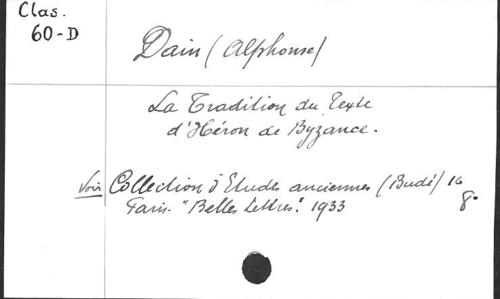 Clas.
60-D
Dain (Alphonse)
La Tradition du Texte
d'Héron de Byzance.
Voir Collection d'Etudes anciennes (Budé) 16
Paris. "Belles Lettres". 1933 8°